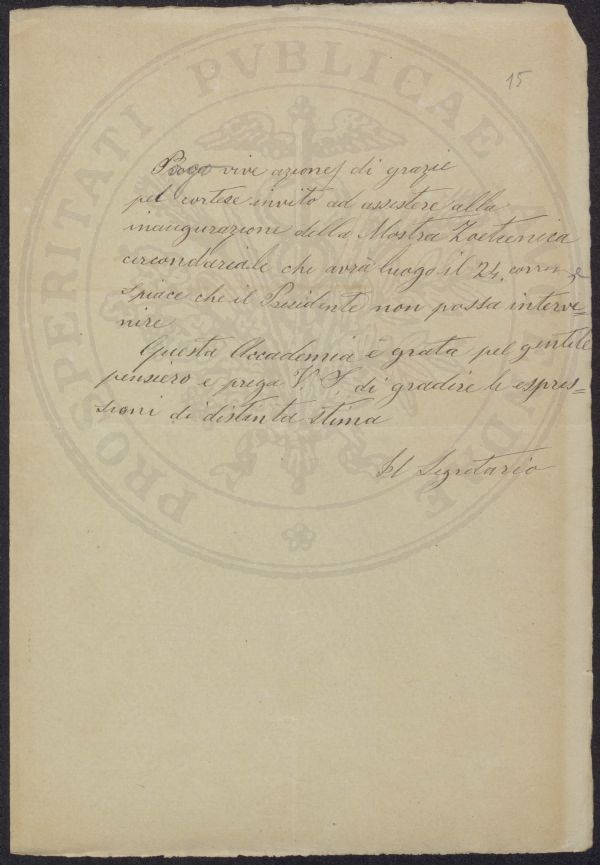 15
vive azioni di grazie
pel cortese invito ad assistere alla
inaugurazione della Mostra Zootecnica
circondariale che avrà luogo il 24. corren e
spiace che il Presidente non possa interve=
nire
Questa Accademia è grata pel gentile
pensiero e prega V. S. di gradire le espres=
sioni di distinta stima
Il Segretario
PROSPERITATI PVBLICAE